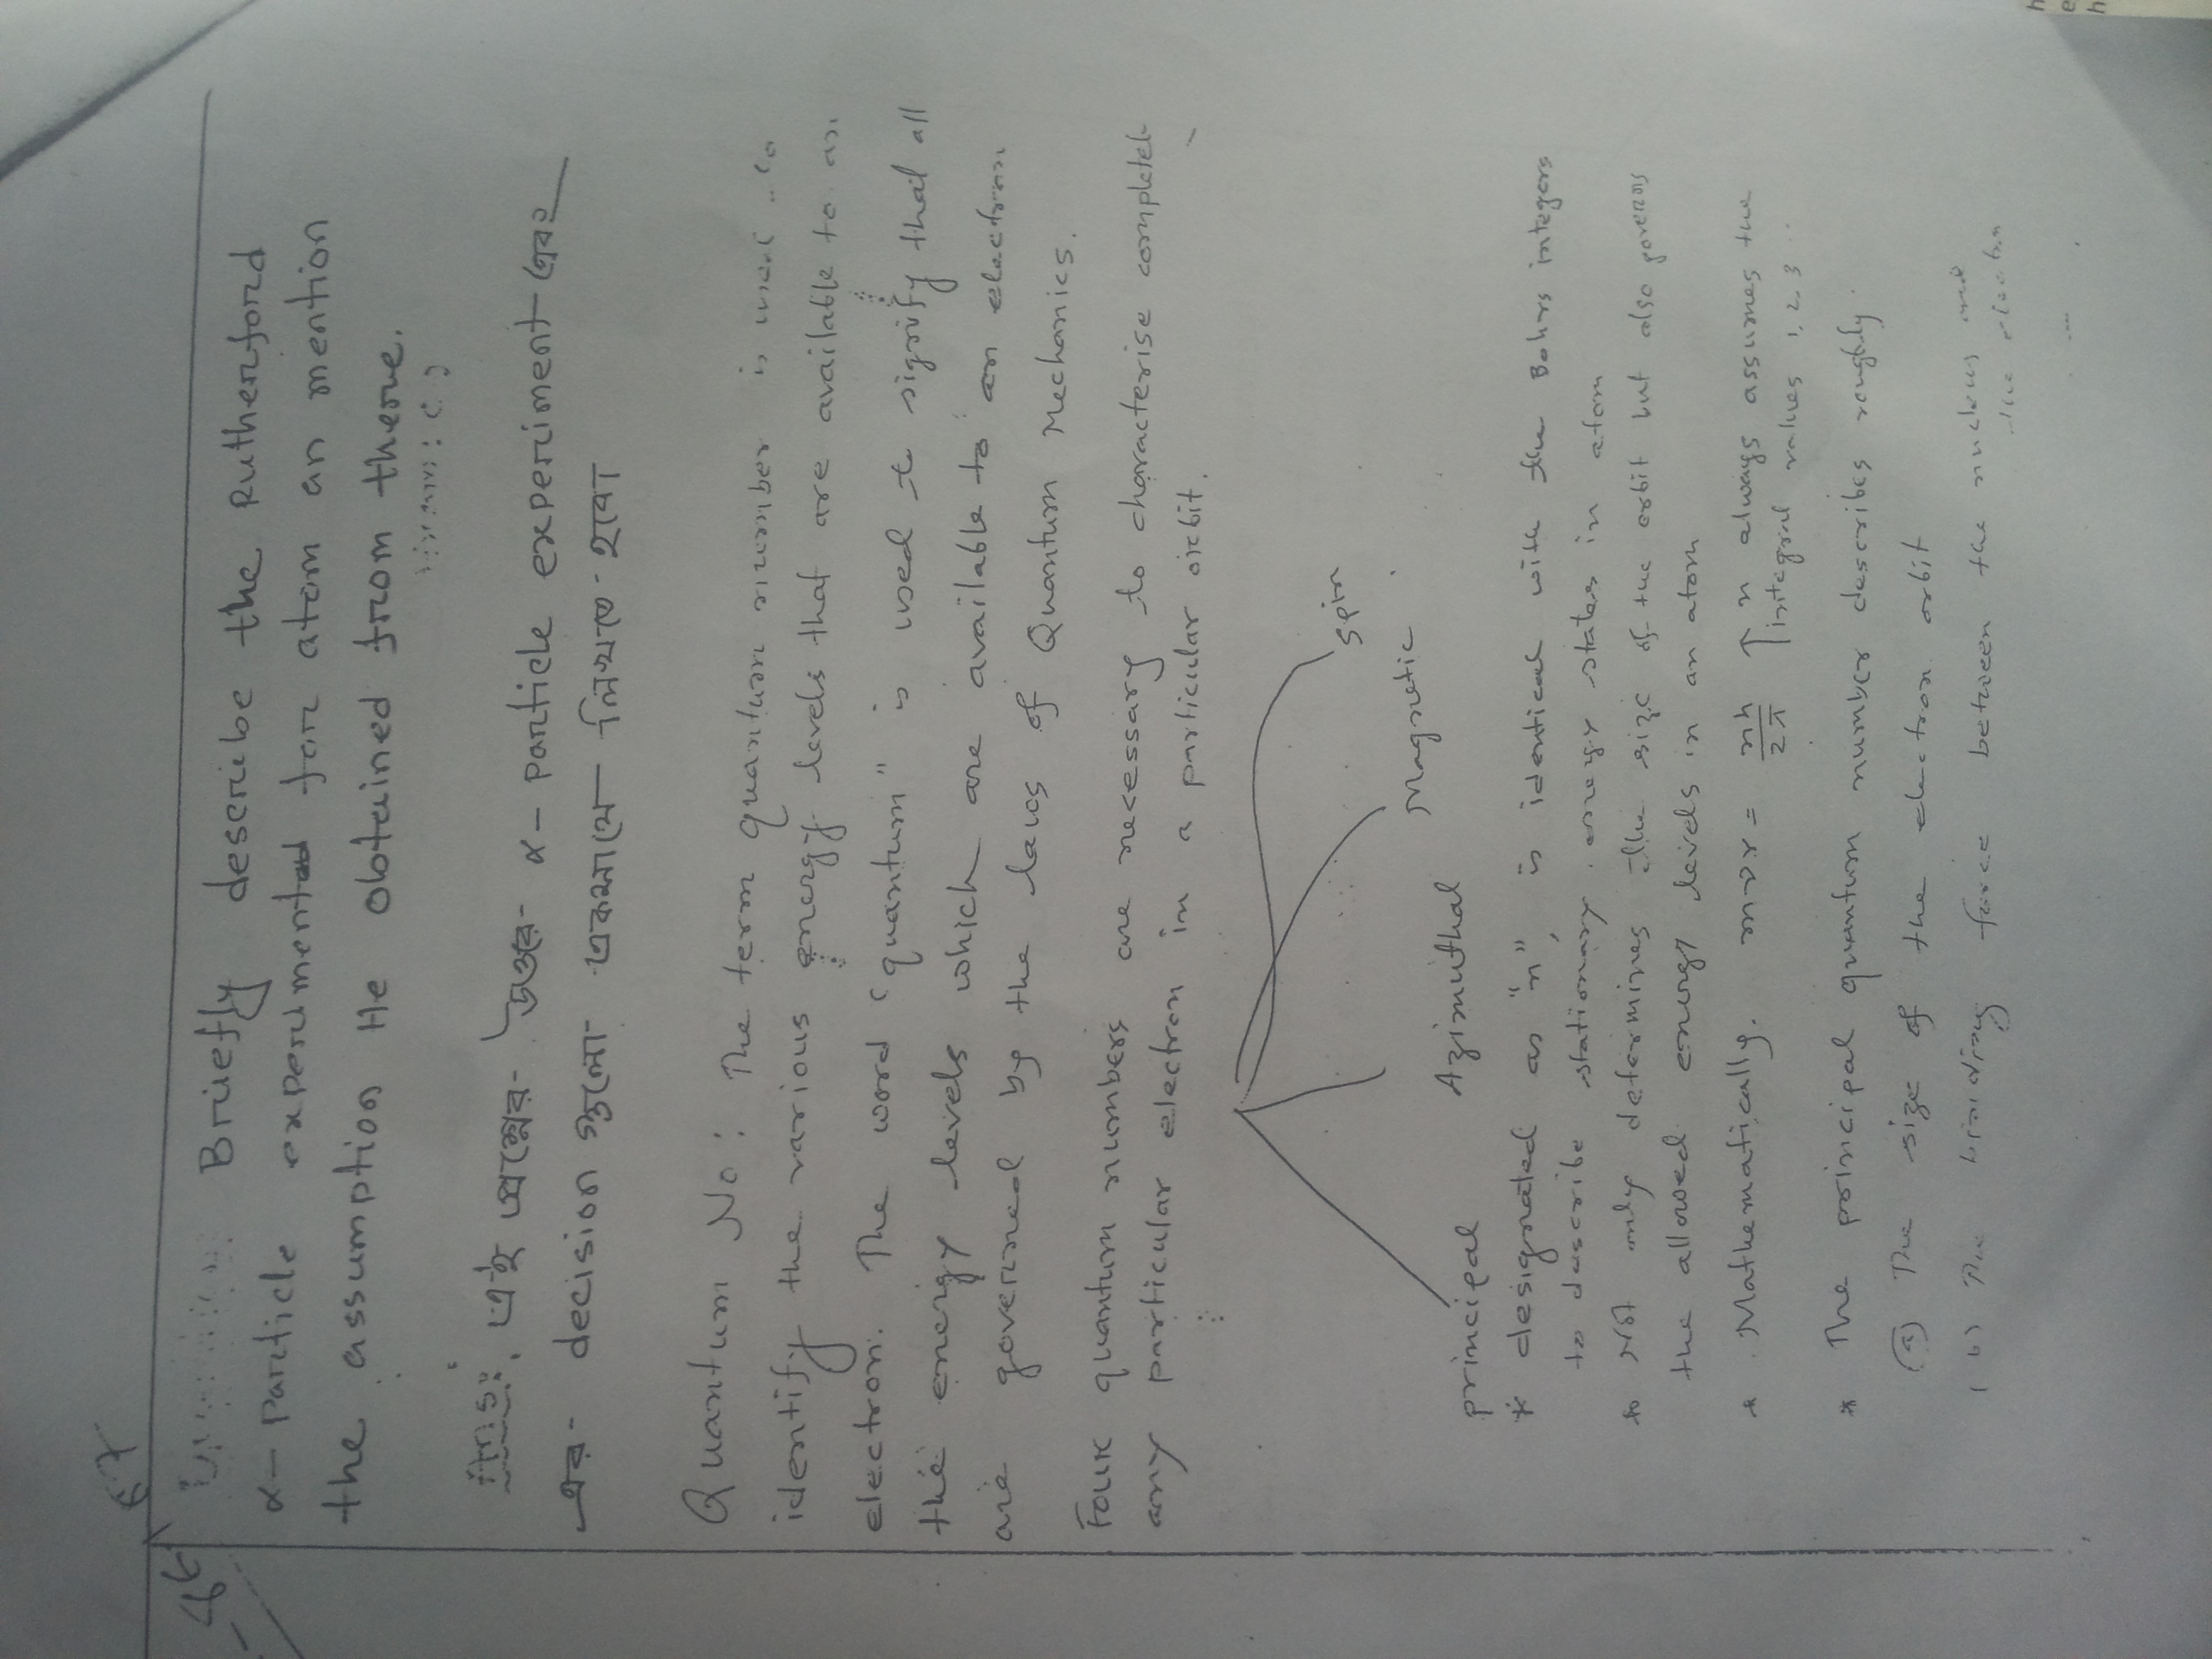 67
Briefly describe the Rutherford
α- Particle experiment for atom an mention
the assumption He obtained from there.
Ans: এই প্রশ্নের উত্তরে α- particle experiment এবং
এর decision গুলো একসাথে লিখতে হবে।
Quantum No: The term quantum number is used to
identify the various energy levels that are available to an
electron. The word "quantum" is used to signify that all
the energy levels which are available to an electron
are governed by the laws of Quantum Mechanics.
Four quantum numbers are necessary to characterise completel
any particular electron in a particular orbit.
Spin
Magnetic
Azimuthal
principal
* designated as "n", is identical with the Bohrs integers
to describe stationary energy states in atom
* Not only determines the size of the orbit but also governs
the allowed energy levels in an atom
* Mathematically. mvr = nh/2π ↑ n always assumes the
integral values 1, 2, 3
* The principal quantum number describes roughly
(a) The size of the electron orbit
(b) The binding force between the nucleus and
the electron